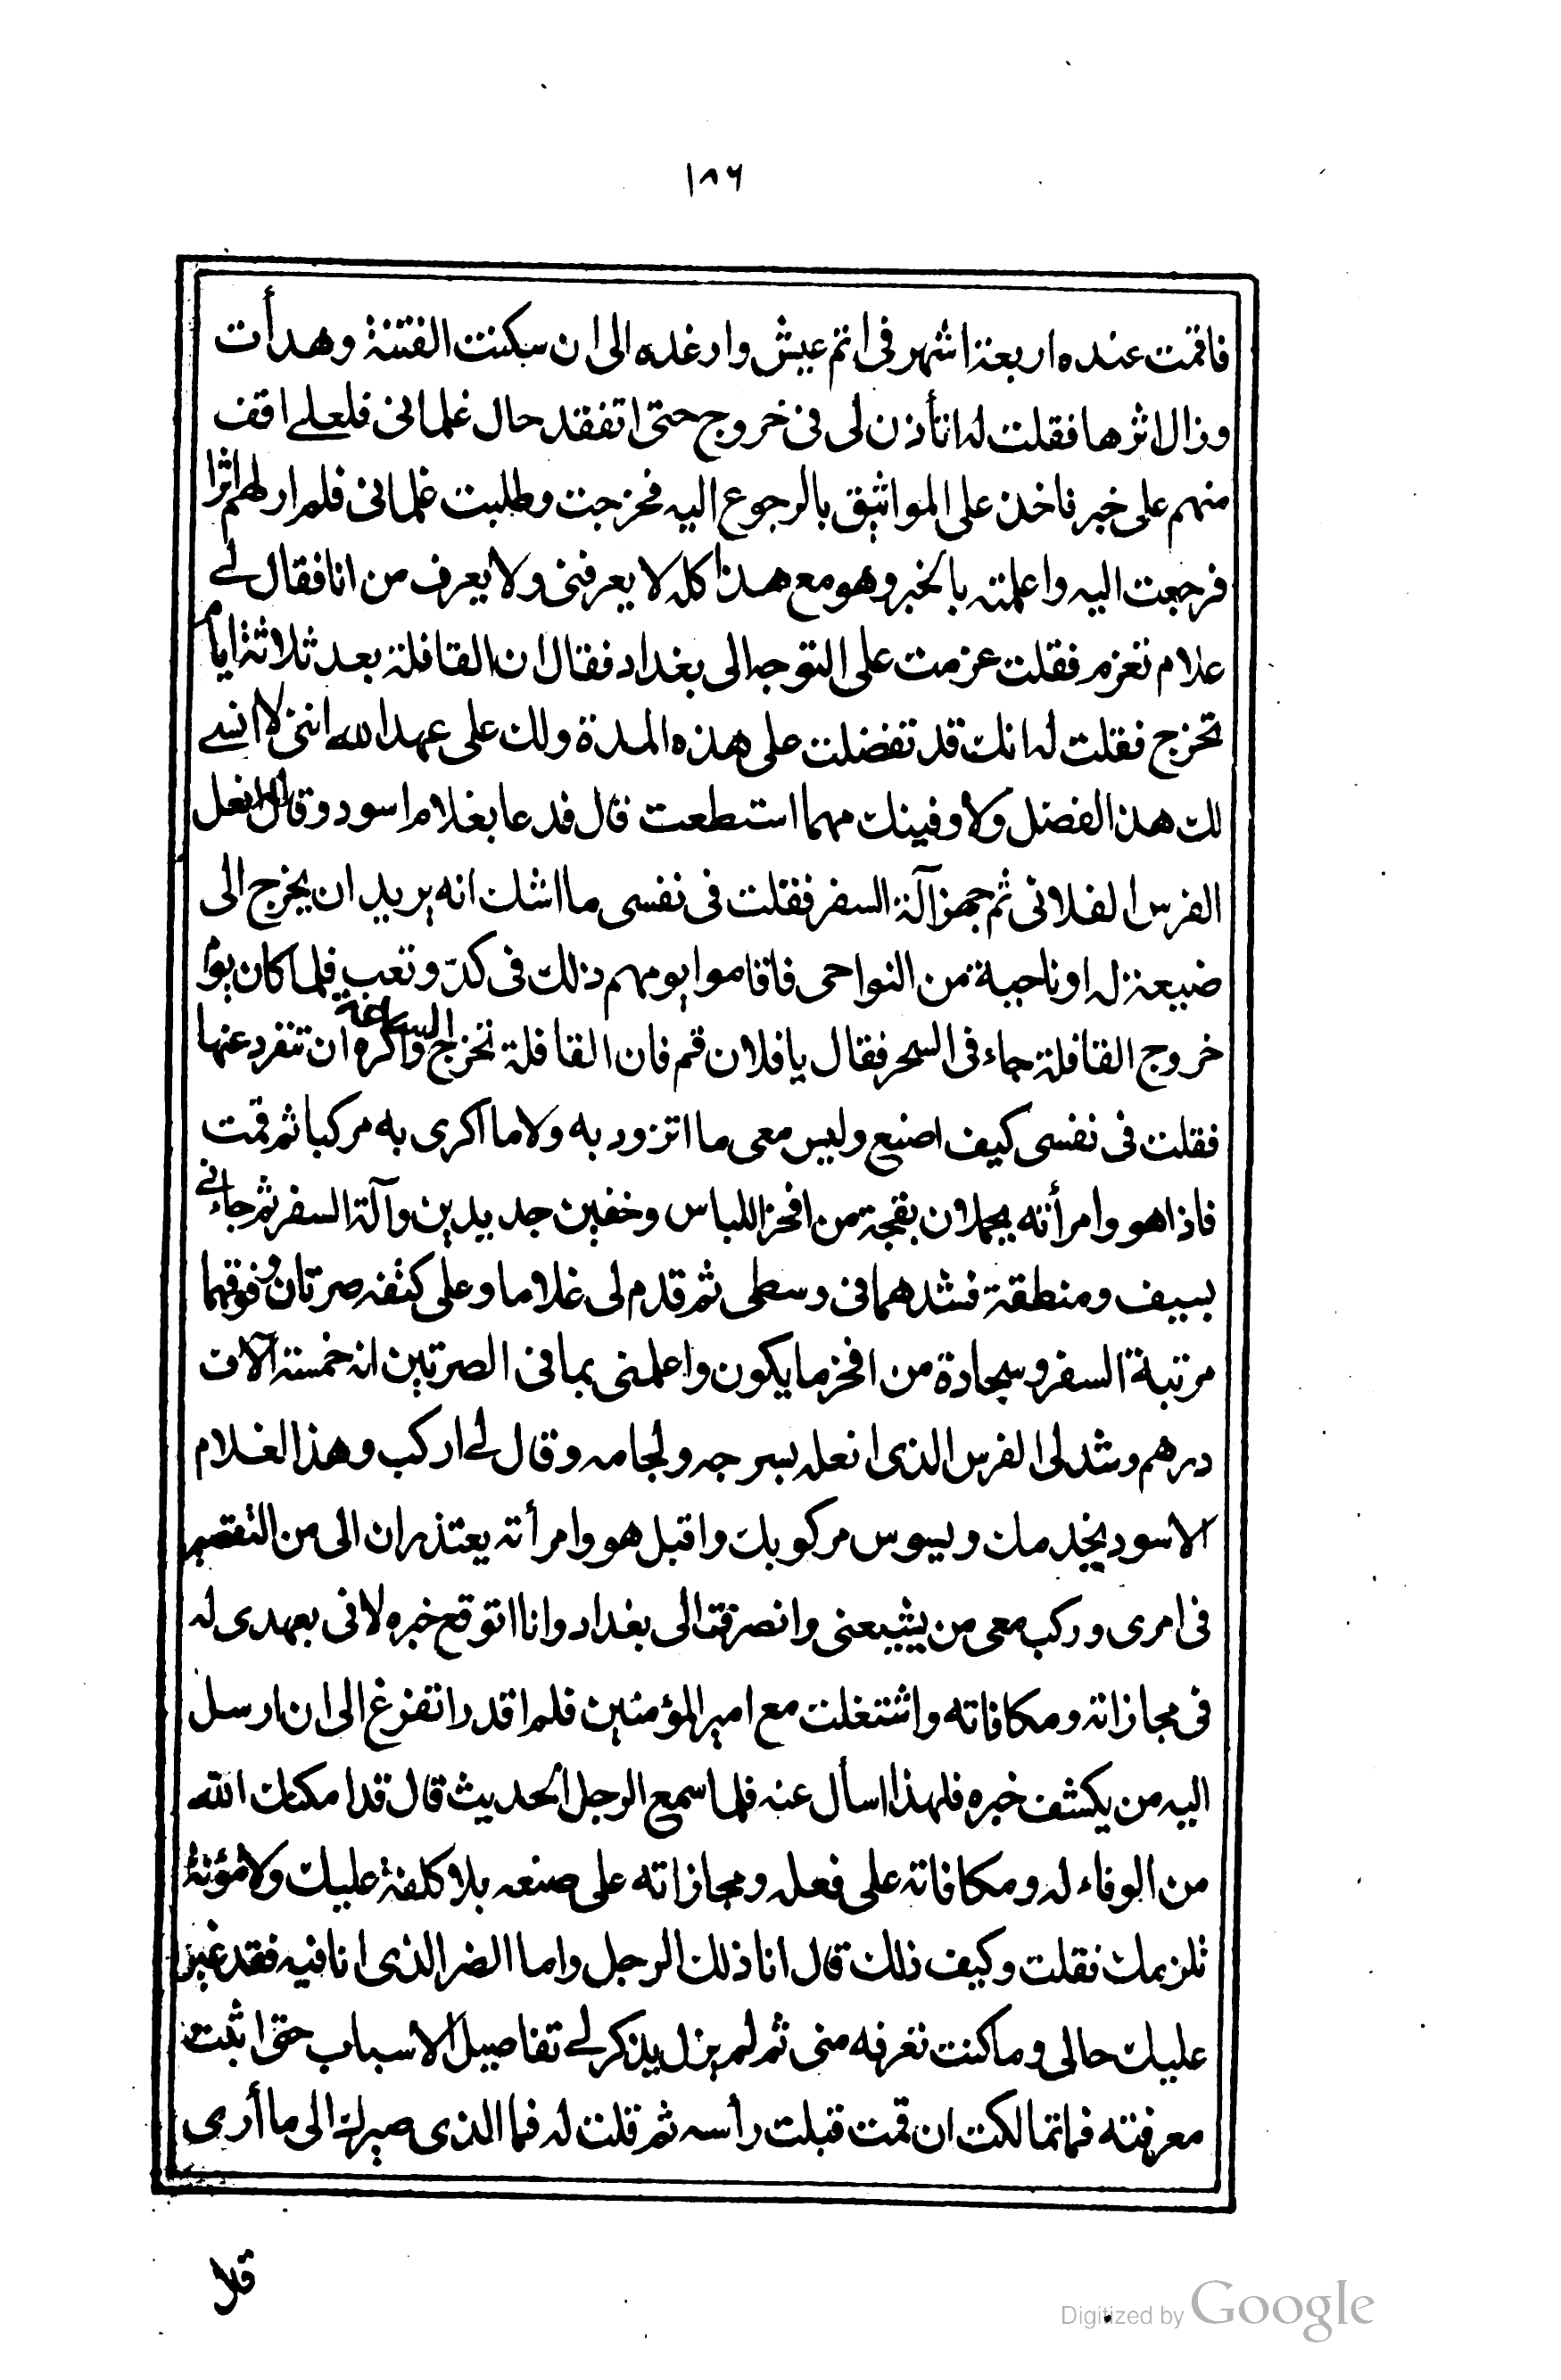 ١٨٦
فاقمت عنده اربعة اشهر فى اتم عيش وارغده الى ان سكنت الفتنة وهدأت
وزال اثرها فقلت له اتأذن لى فى خروج حتى اتفقد حال غلمانى فلعلے اقف
منهم على خبر فاخذ على المواثيق بالرجوع اليه فخرجت وطلبت غلمانى فلم ار لهم اثرا
فرجعت اليه واعلمته بالخبر وهو مع هذا كله لا يعرفنى ولا يعرف من انا فقال لے
علام تعزم فقلت عزمت على التوجه الى بغداد فقال ان القافلة بعد ثلاثة ايام
تخرج فقلت له انك قد تفضلت على هذه المدة ولك على عهد الله اننى لا انسے
لك هذا الفضل ولاوفينك مهما استطعت قال فدعا بغلام اسود وقال له انعل
الفرس الفلانى ثم جهز آلة السفر فقلت فى نفسى ما اشك انه يريد ان يخرج الى
ضيعة له او ناحية من النواحى فاقاموا يومهم ذلك فى كدّ وتعب فلما كان يوم
خروج القافلة جاء فى السحر فقال يا فلان قم فان القافلة تخرج الساعة واكره ان تنفرد عنها
فقلت فى نفسى كيف اصنع وليس معى ما اتزود به ولا ما اكرى به مركبا ثم قمت
فاذا هو وامرأته يحملان بقجة من افخر اللباس وخفين جديدين وآلة السفر ثم جاءنے
بسيف ومنطقة فشدهما فى وسطى ثم قدم لى غلاما وعلى كتفه صرتان وفوقهما
مرتبة السفر وسجادة من افخر ما يكون واعلمنى بما فى الصرتين انه خمسة آلاف
درهم وشد لى الفرس الذى انعله بسرجه ولجامه وقال لے اركب وهذا الغلام
الاسود يخدمك ويسوس مركوبك واقبل هو وامرأته يعتذران الى من التقصير
فى امرى وركب معى من يشيعنى وانصرفت الى بغداد وانا اتوقع خبره لافى بعهدى له
فى مجازاته ومكافاته واشتغلت مع امير المؤمنين فلم اقدر اتفرغ الى ان ارسل
اليه من يكشف خبره فلهذا اسأل عنه فلما سمع الرجل الحديث قال قد امكنك الله
من الوفاء له ومكافاته على فعله ومجازاته على صنعه بلا كلفة عليك ولا مؤنة
تلزمك فقلت وكيف ذلك قال انا ذلك الرجل واما الضر الذى انا فيه فقد غير
عليك حالى وما كنت تعرفه منى ثم لم يزل يذكر لے تفاصيل الاسباب حتى اثبت
معرفته فما تمالكت ان قمت قبلت رأسه ثم قلت له فما الذى صيرك الى ما أرى
قال
Digitized by Google